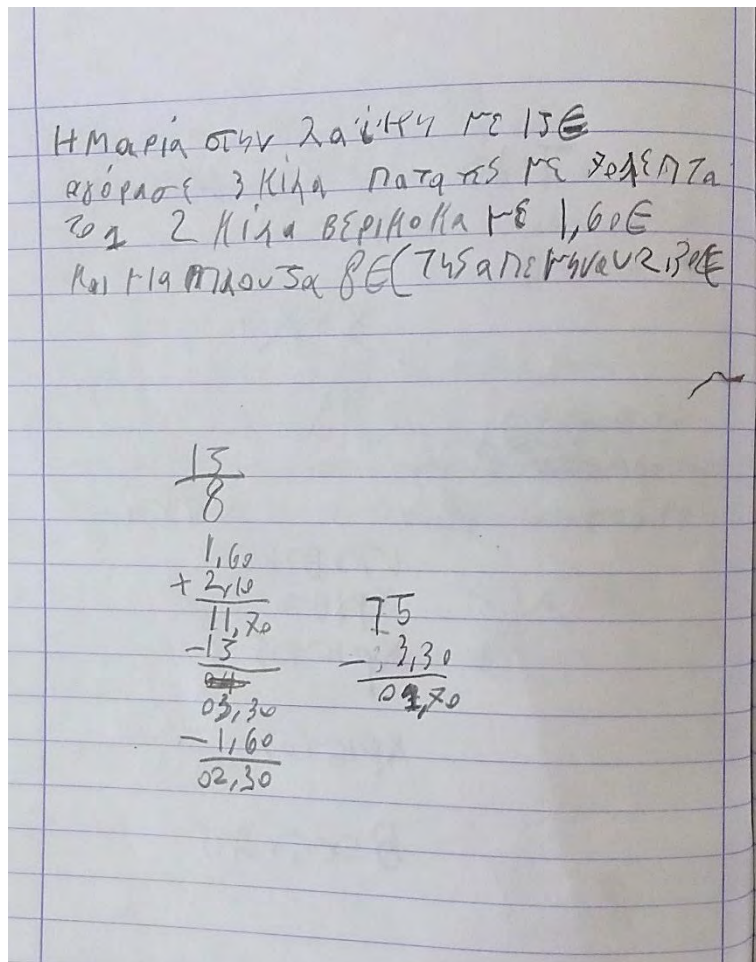 Η Μαρία στην λαϊκη με 15€
αγόρασε 3 κιλα πατατες με 70 λεπτα
το 1 2 κιλα βερικοκα με 1,60€
και μια μπλουζα 8€ (της απεμηναν 2,30€
15
8
1,60
+ 2,10
11,70
- 15
03,30
- 1,60
02,30
15
- 3,30
01,70